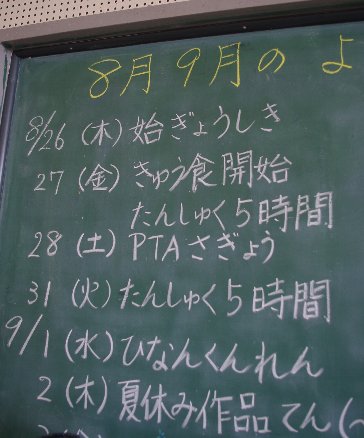 8月9月のよ
8/26(木)始ぎょうしき
27(金)きゅう食開始
たんしゅく5時間
28(土)PTAさぎょう
31(火)たんしゅく5時間
9/1(水)ひなんくんれん
2(木)夏休み作品てん(